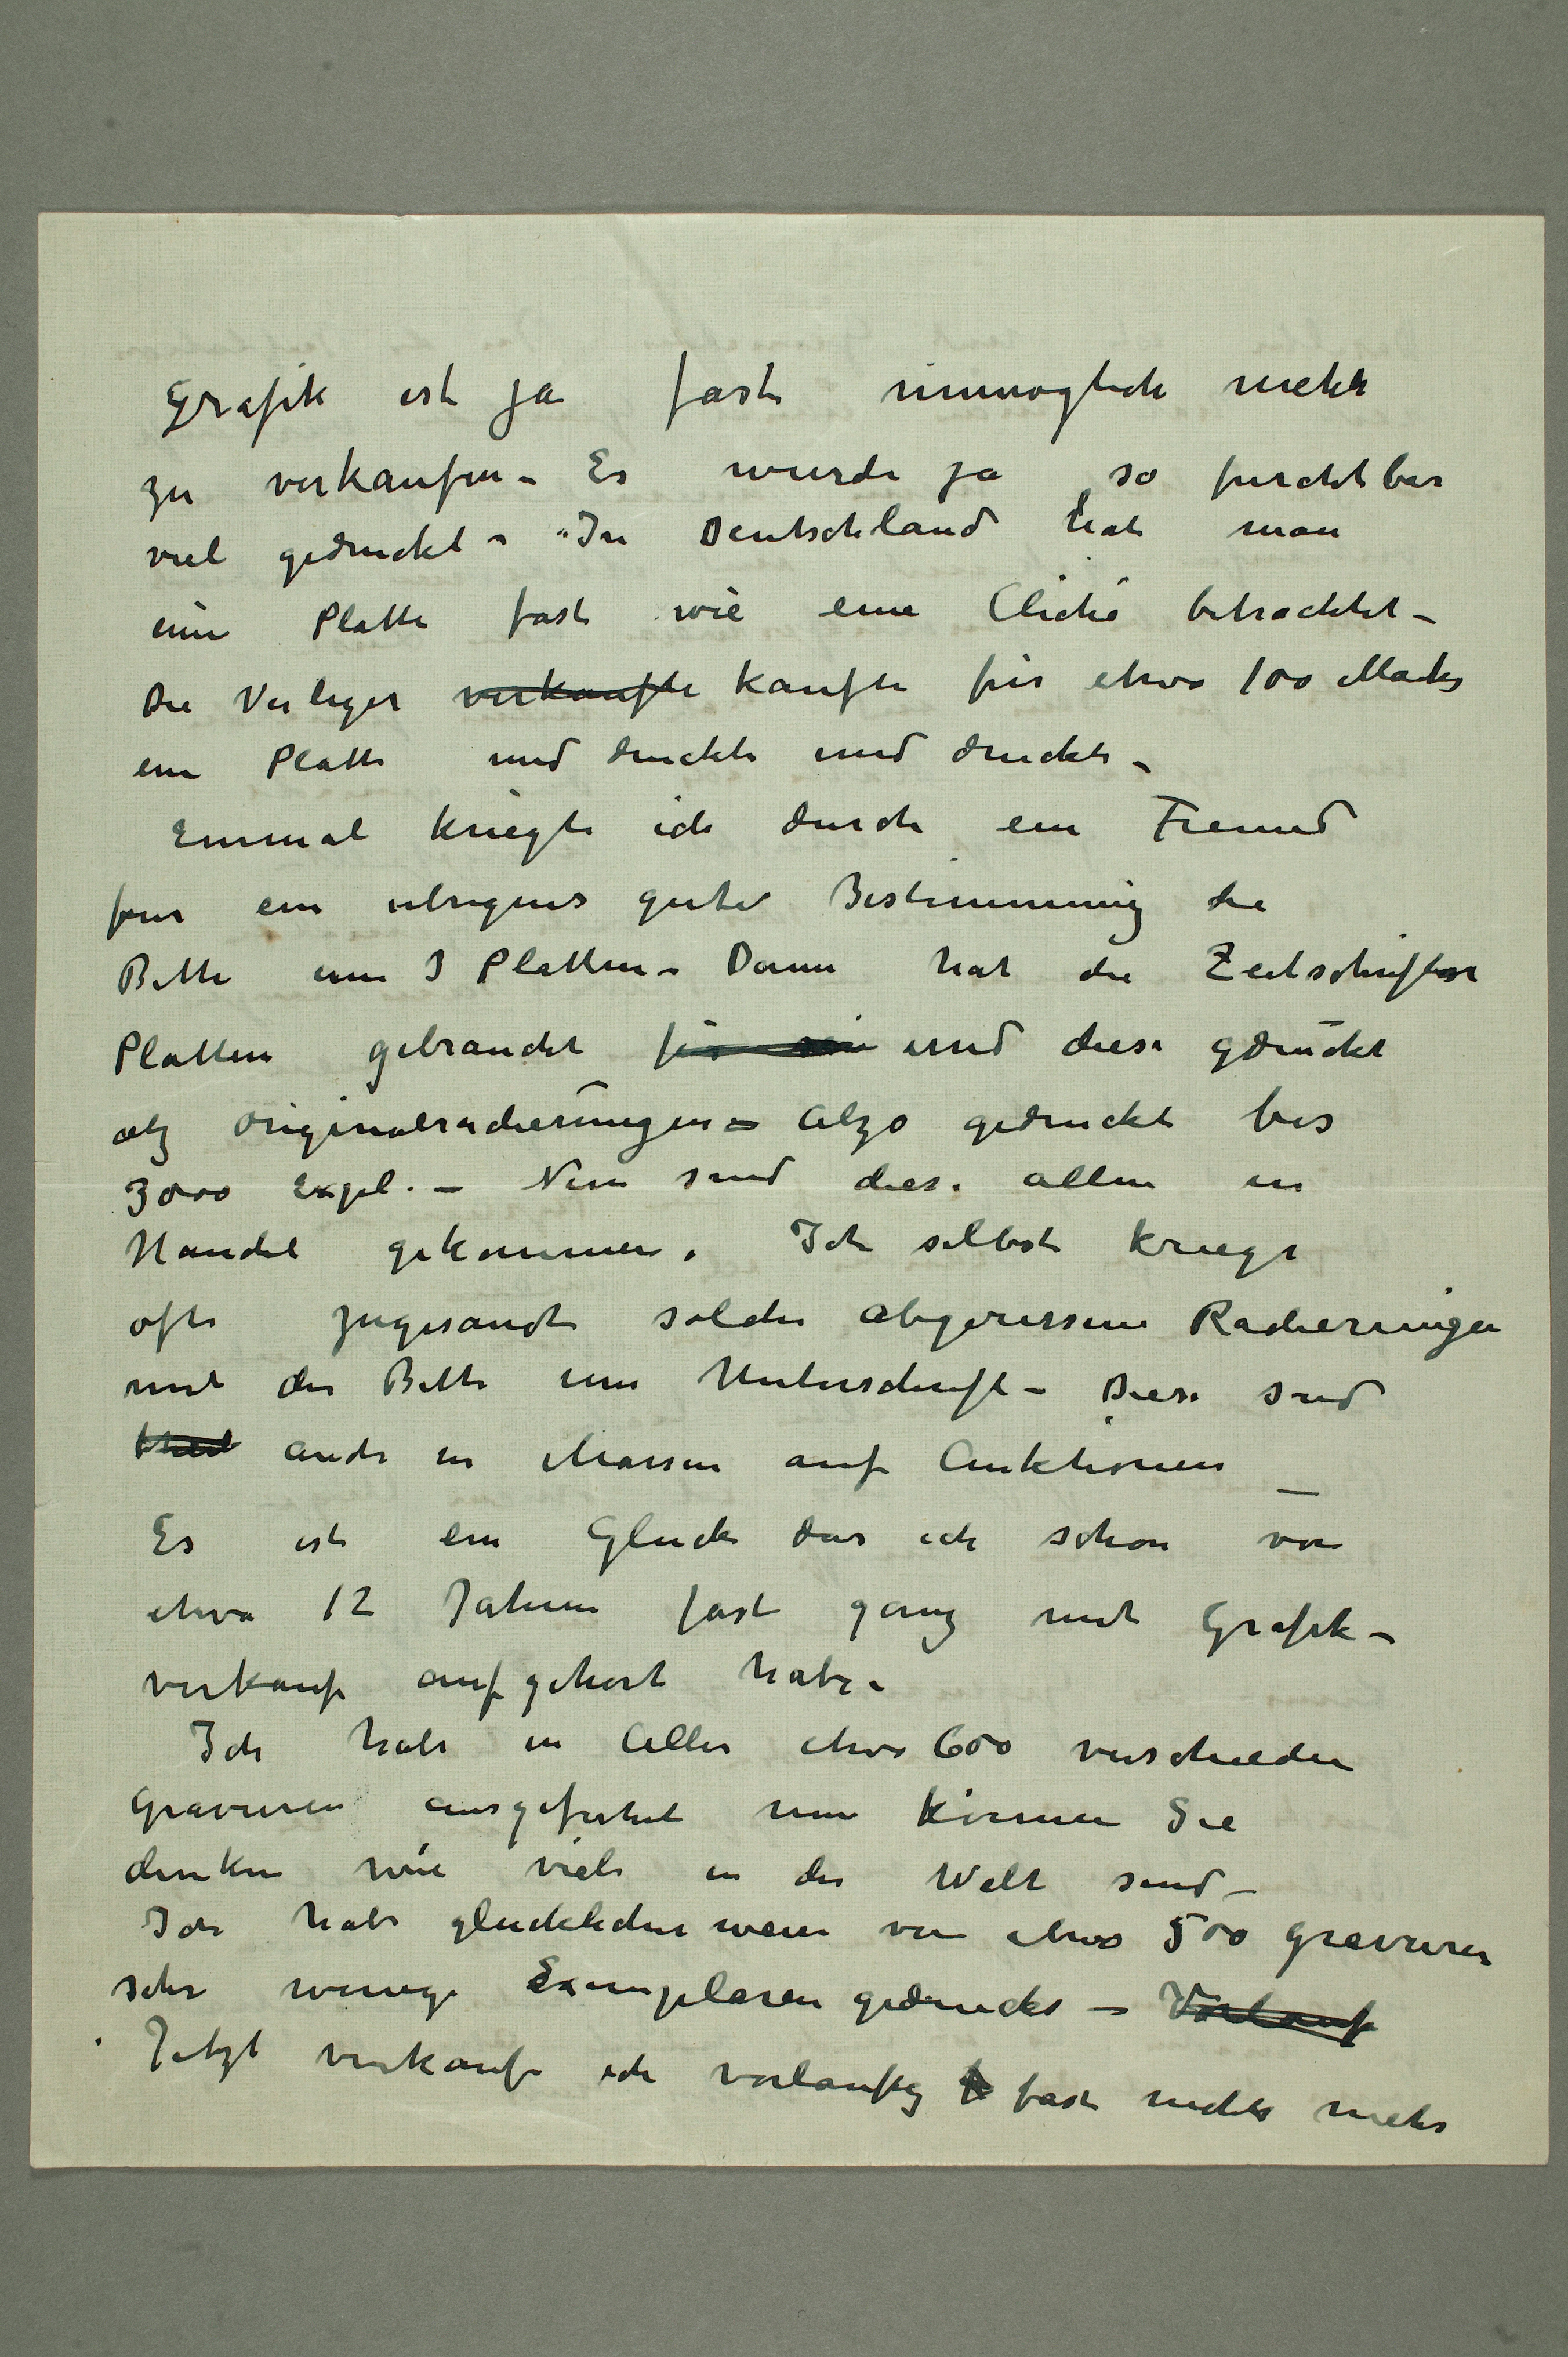 Grafik ist ja fast unmöglich mehr
zu verkaufen – Es wurde ja so furchtbar
viel gedruckt – In Deutschland hat man
eine Platte fast wie eine Cliché betrachtet –
Die Verleger verkaufte kaufte für etwa 100 Mark
ein Platte und druckte und druckte –
Einmal kriegte ich durch ein Freund
fur ein ubrigens gute Bestimmung die
Bitte um 3 Platten – Dann hat die Zeitschrift
Platten gebraucht für und diese gedruckt
alz Originalradierungen – Alzo gedruckt bis
3000 Expl. – Nun sind diese allen in
Handel gekommen. Ich selbst kriege
oft zugesandt solche abgerissene Radierungen
mit der Bitte um Unterschrift – Diese sind
auch in Massen auf Auktionen –
Es ist ein Gluck das ich schon von
etwa 12 Jahren fast ganz mit Grafik–
verkauf aufgehort habe –
Ich habe in Alles etwa 600 verschieden
Gravuren ausgefuhrt nun können Sie
denken wie viele in der Welt sind –
Ich habe glucklicherweise von etwa 500 Gravuren
sehr wenige Exemplaren gedruckt – Vorlauf
Jetzt verkaufe ich vorlaufig fast nichts mehr